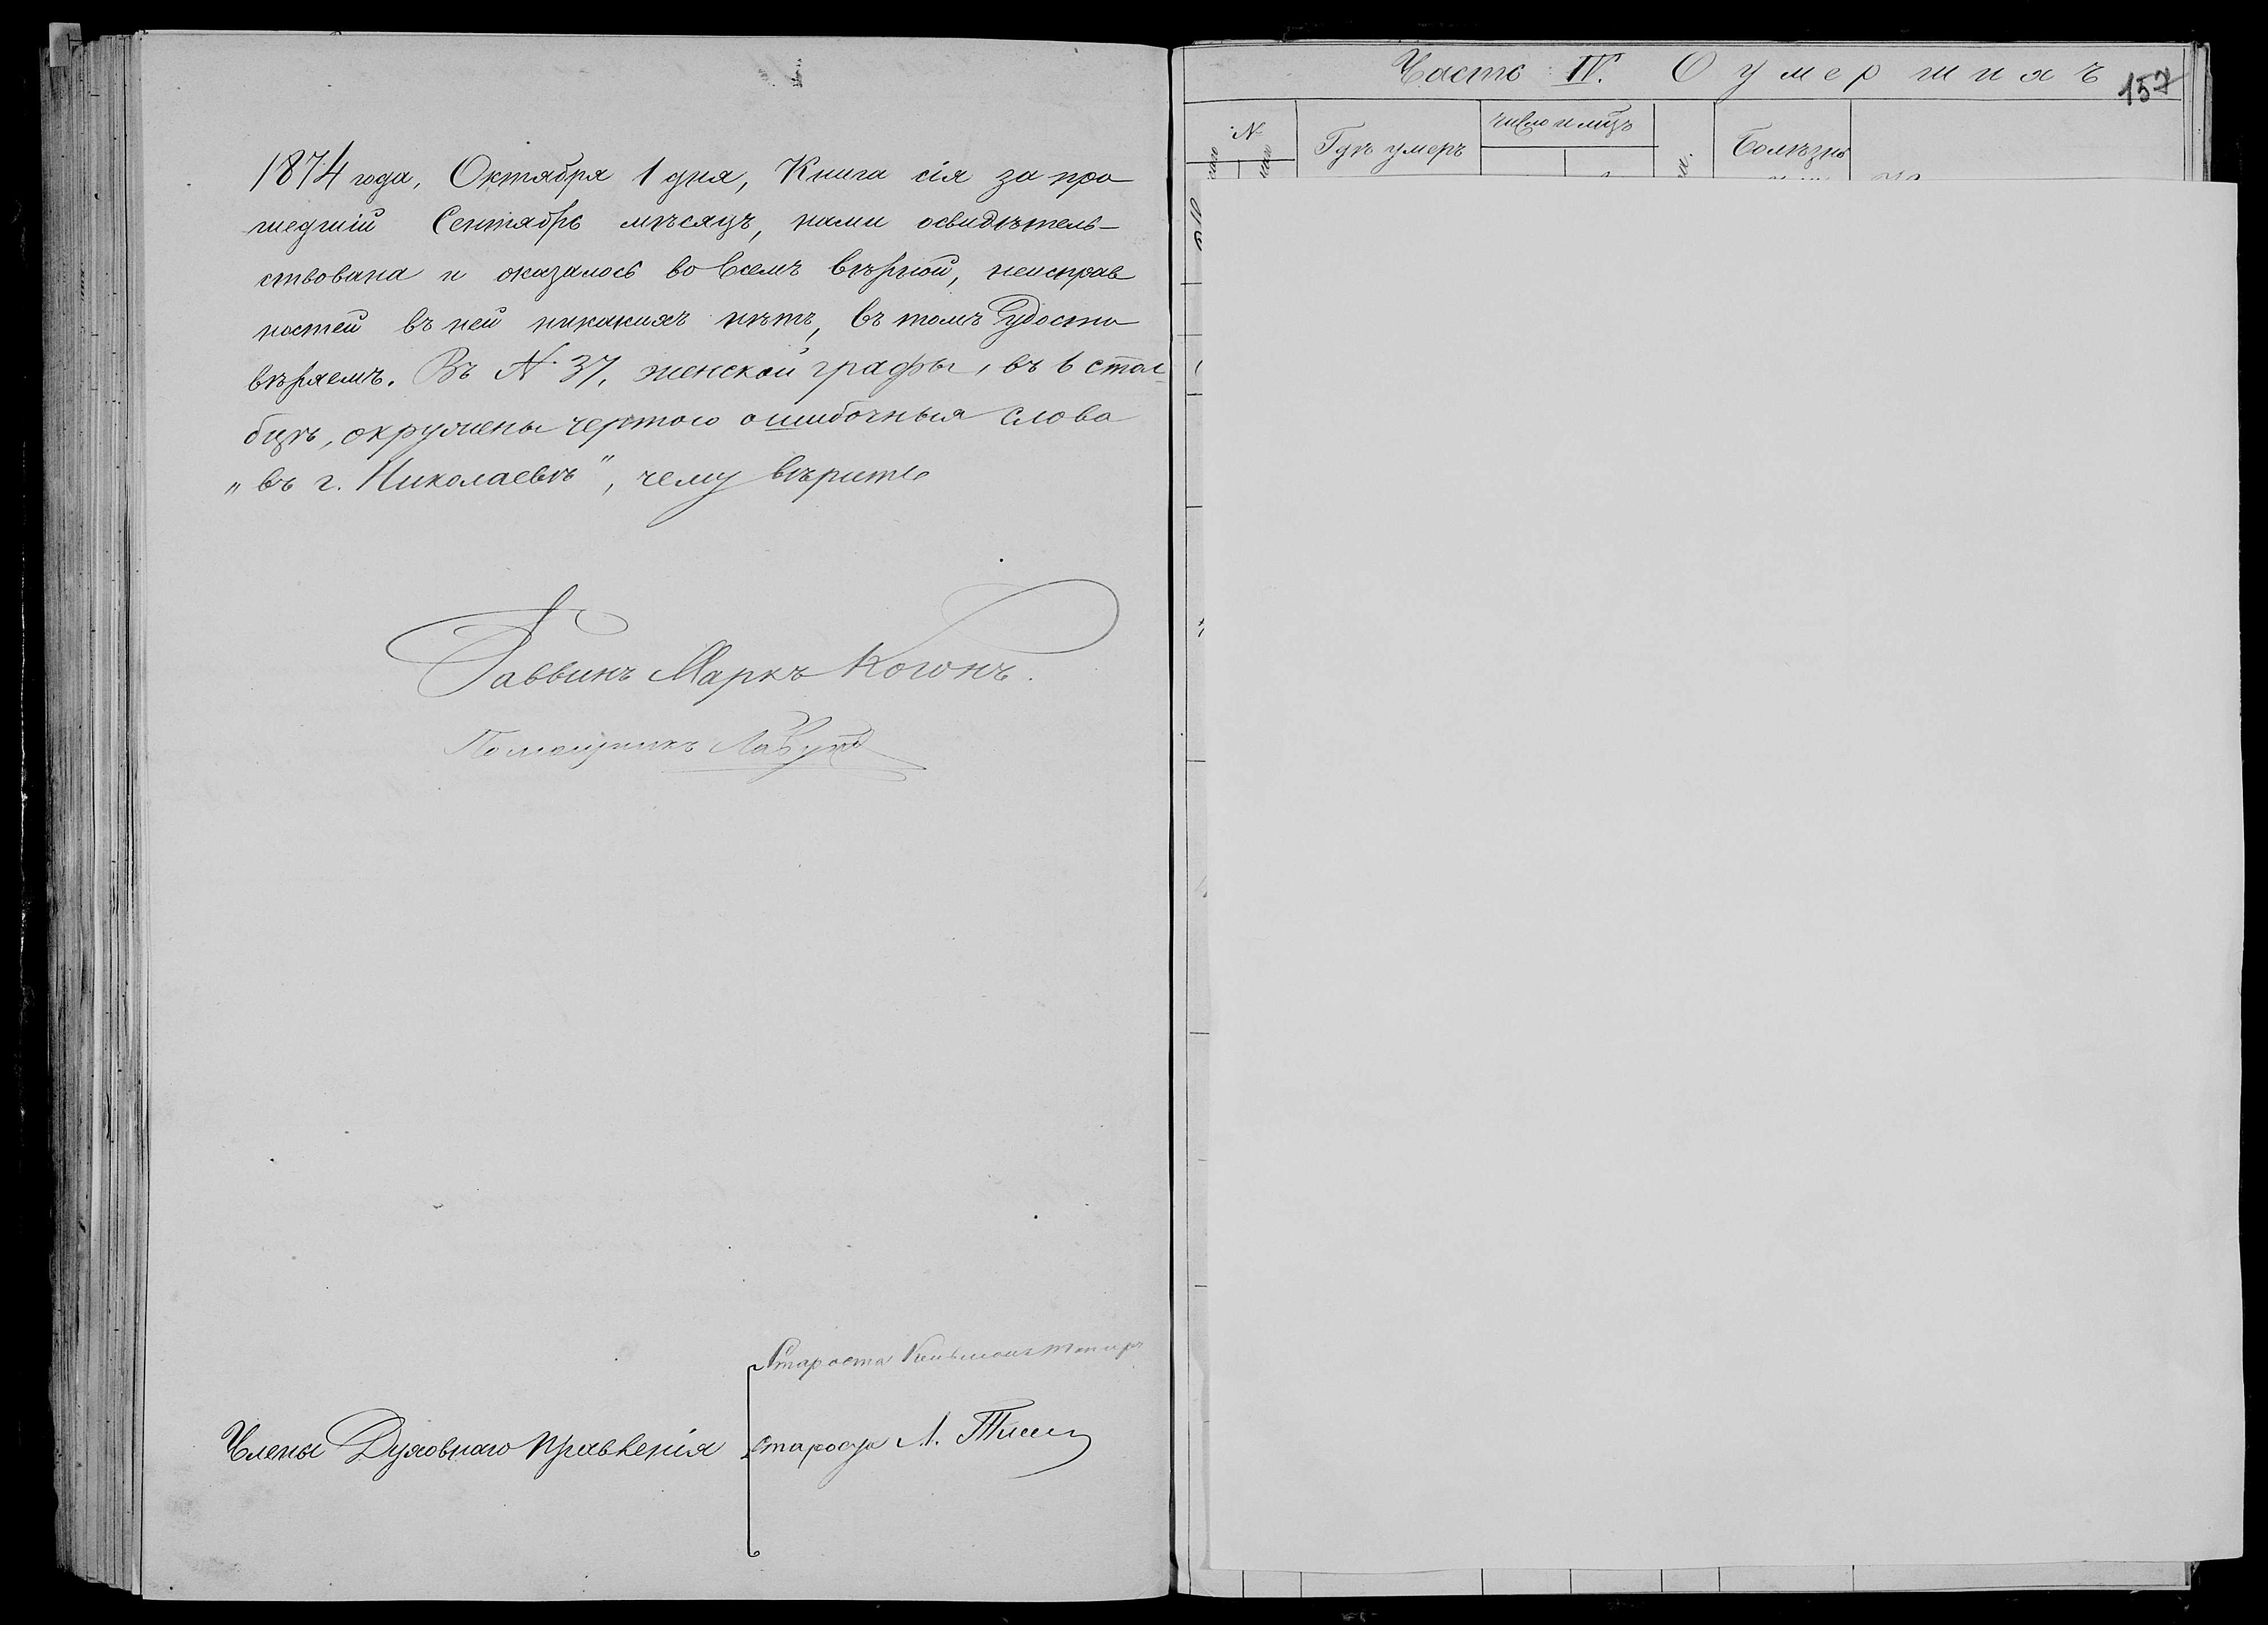 1874 года, Октября 1 дня, Книга сія за про
шедшій Сентябрь мѣсяцъ, нами освидѣтель-
ствована и оказалось во всемъ вѣрной, неисправ
ностей въ ней никакихъ нѣтъ, въ томъ удосто
вѣряемъ. Въ № 37, женской графы, въ 6 стол-
бцѣ, окружены чертою ошибочныя слова
„въ г. Николаевѣ", чему вѣрить
Раввинъ Маркъ Когонъ.
Помощникъ
Староста
Члены Духовнаго Правленія
староста Л.
Часть IV. О умершихъ
157
№
Гдѣ умеръ
число и мѣц.
Болѣзнь